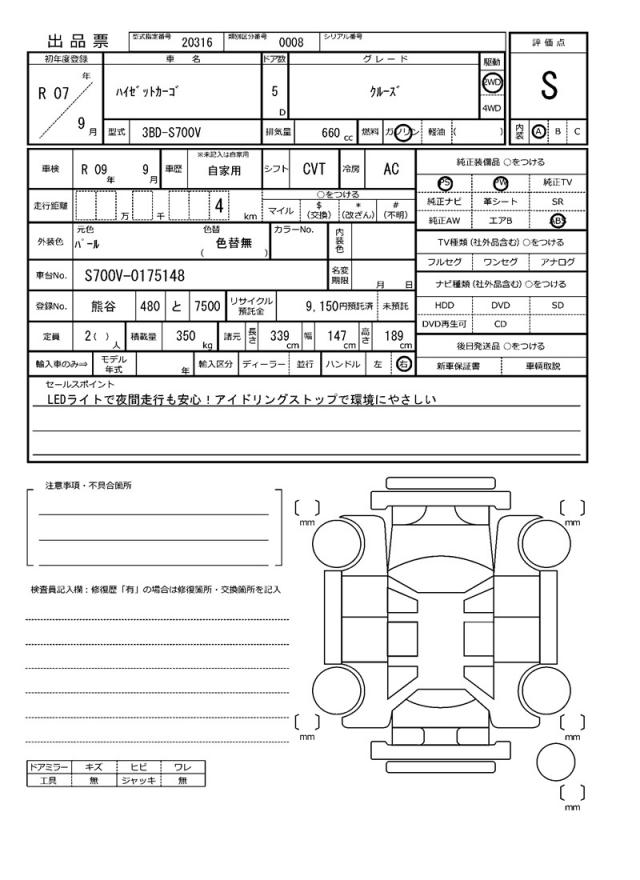 出品票 型式指定番号 20316 類別区分番号 0008 シリアル番号
初年度登録 車名 ドア数 グレード 駆動 評価点
R 07 年 9 月 ﾊｲｾﾞｯﾄｶｰｺﾞ 5 D ｸﾙｰｽﾞ 2WD 4WD S
型式 3BD-S700V 排気量 660 cc 燃料 ガソリン 軽油 ( ) 内装 A B C
車検 R 09 年 9 月 車歴 ※未記入は自家用 自家用 シフト CVT 冷房 AC
走行距離 万 千 4 km ○をつける マイル $(交換) *(改ざん) #(不明)
外装色 元色 ﾊﾟｰﾙ 色替 ( 色替無 ) カラーNo. 内装色
車台No. S700V-0175148 名変期限 月 日
登録No. 熊谷 480 と 7500 リサイクル預託金 9,150円預託済 未預託
定員 2( ) 人 積載量 350 kg 諸元 長さ 339 cm 幅 147 cm 高さ 189 cm
輸入車のみ⇒ モデル年式 年 輸入区分 ディーラー 並行 ハンドル 左 右
純正装備品 ○をつける
PS PW 純正TV
純正ナビ 革シート SR
純正AW エアB ABS
TV種類(社外品含む)○をつける
フルセグ ワンセグ アナログ
ナビ種類(社外品含む)○をつける
HDD DVD SD
DVD再生可 CD
後日発送品 ○をつける
新車保証書 車輌取説
セールスポイント
LEDライトで夜間走行も安心！アイドリングストップで環境にやさしい
注意事項・不具合箇所
検査員記入欄：修復歴「有」の場合は修復箇所・交換箇所を記入
ドアミラー キズ ヒビ ワレ
工具 無 ジャッキ 無
〔 〕mm
〔 〕mm
〔 〕mm
〔 〕mm
〔 〕mm